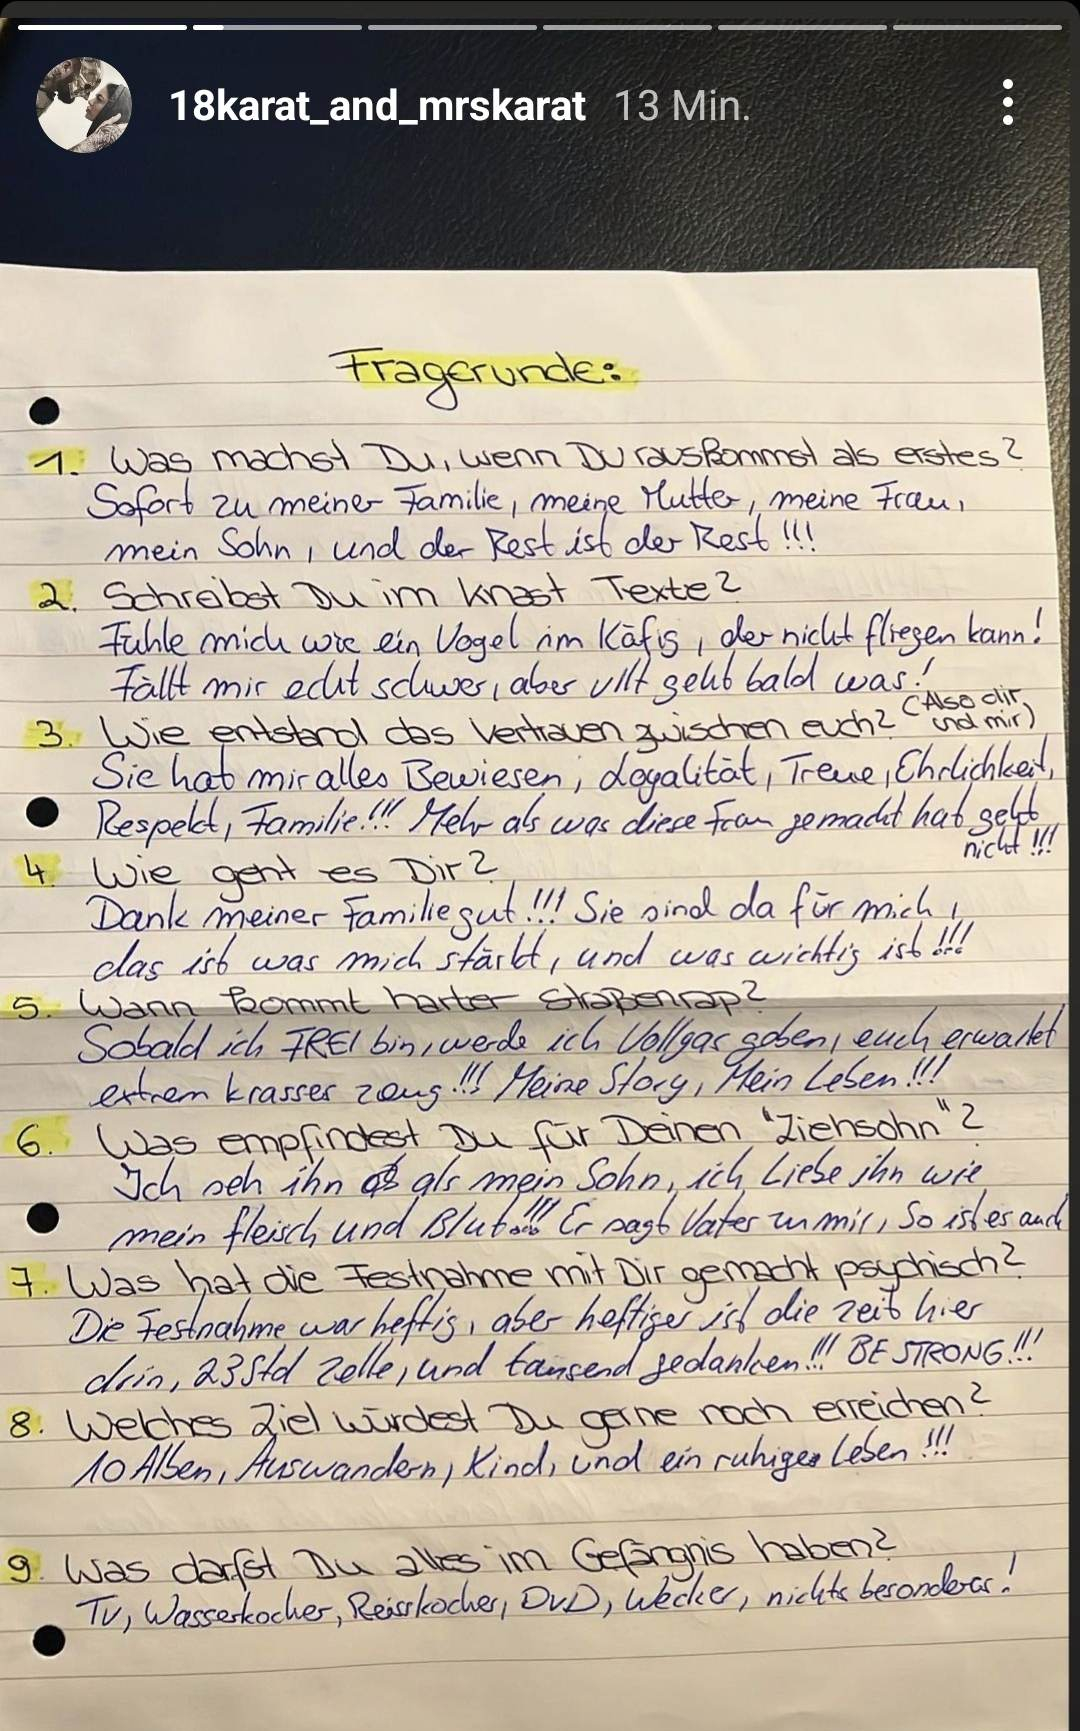 18karat_and_mrskarat 13 Min.
Fragerunde:
1. Was machst Du, wenn Du rauskommst als erstes?
Sofort zu meiner Familie, meine Mutter, meine Frau,
mein Sohn, und der Rest ist der Rest!!!
2. Schreibst Du im Knast Texte?
Fühle mich wie ein Vogel im Käfig, der nicht fliegen kann!
Fällt mir echt schwer, aber vllt geht bald was!
3. Wie entstand das Vertrauen zwischen euch? (Also dir
und mir)
Sie hat mir alles Bewiesen, Loyalität, Treue, Ehrlichkeit,
Respekt, Familie!!! Mehr als was diese Frau gemacht hat geht
nicht!!!
4. Wie geht es Dir?
Dank meiner Familie gut!!! Sie sind da für mich,
das ist was mich stärkt, und was wichtig ist!!!
5. Wann kommt harter Straßenrap?
Sobald ich FREI bin, werde ich Vollgas geben, euch erwartet
extrem krasses zeug!!! Meine Story, Mein Leben!!!
6. Was empfindest Du für Deinen "Ziehsohn"?
Ich seh ihn als mein Sohn, ich Liebe ihn wie
mein fleisch und Blut!!! Er sagt Vater zu mir, So ist es auch
7. Was hat die Festnahme mit Dir gemacht psychisch?
Die Festnahme war heftig, aber heftiger ist die zeit hier
drin, 23Std Zelle, und tausend gedanken!!! BE STRONG!!!
8. Welches Ziel würdest Du gerne noch erreichen?
10 Alben, Auswandern, Kind, und ein ruhiges Leben!!!
9. Was darfst Du alles im Gefängnis haben?
TV, Wasserkocher, Reisskocher, DVD, Wecker, nichts besonderes!